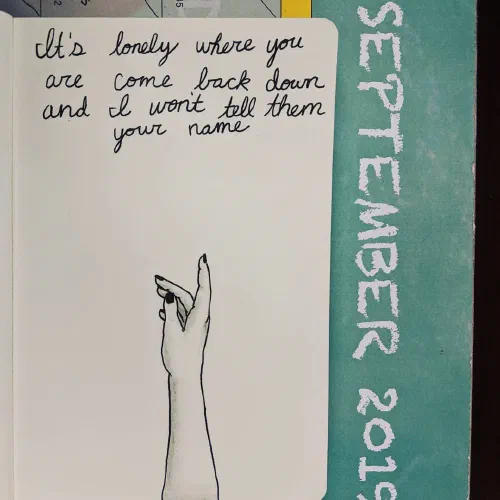 It's lonely where you
are come back down
and I won't tell them
your name
SEPTEMBER 2019